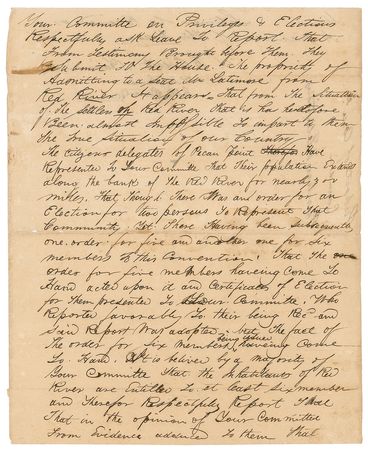 Your Committee on Privileges & Elections
Respectfully ask Leave To Report That
From Testimony Brought before Them They
Submit To The House The propriety of
Admitting to a seat Mr Latimore from
Red River It appears That from The Situation
of the Settlers on Red River That it has heretofore
Been almost impossible to impart to them
the True Situation of our Country
The delegates of Pecan Point Have
Represented To Your Committee That Their population Extends
along the bank of The Red River for nearly
miles, That Though There Was an order for an
Election for Two persons To Represent That
Community, Yet There Having been Subsequently
one order for five and another one for Six
members to this Convention That The
order for five members having Come To
Hand acted upon it and Certificates of Election
for Them presented To Your Committee, Who
Reported favorably To their being Recd and
Said Report Was adopted, but The fact of
The order for Six Members being issued having Come
To Hand. It is believed by a Majority of
Your Committee That the inhabitants of Red
River are Entitled To at least Six member
and Therefor Respectfully Report That
That in the opinion of Your Committee
From Evidence adduced To them That